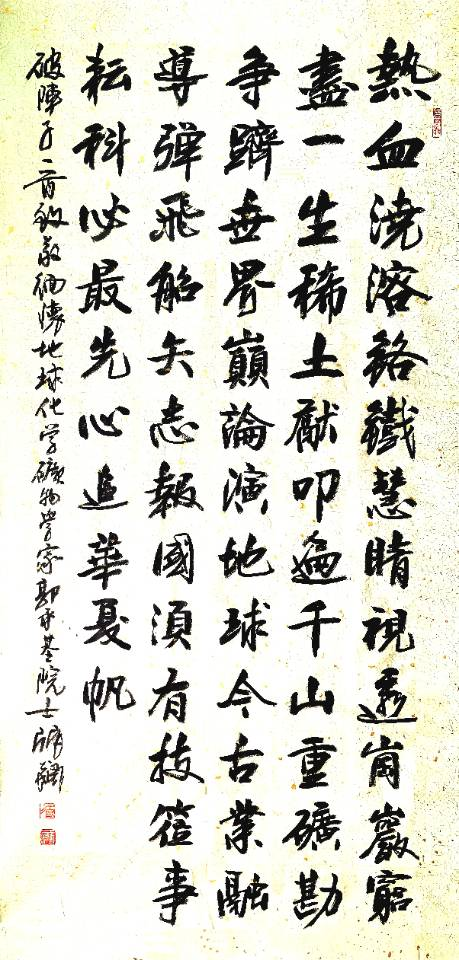 熱血澆溶鉻鐵慧睛視透崗巖窮
盡一生稀土獻叩遍千山重礦勘
争躋世界巔論演地球今古業融
導彈飛船矢志報國須有技事
耘科必最先心追華夏帆
破陣子一首致敬緬懷地球化学礦物學家郭承基院士